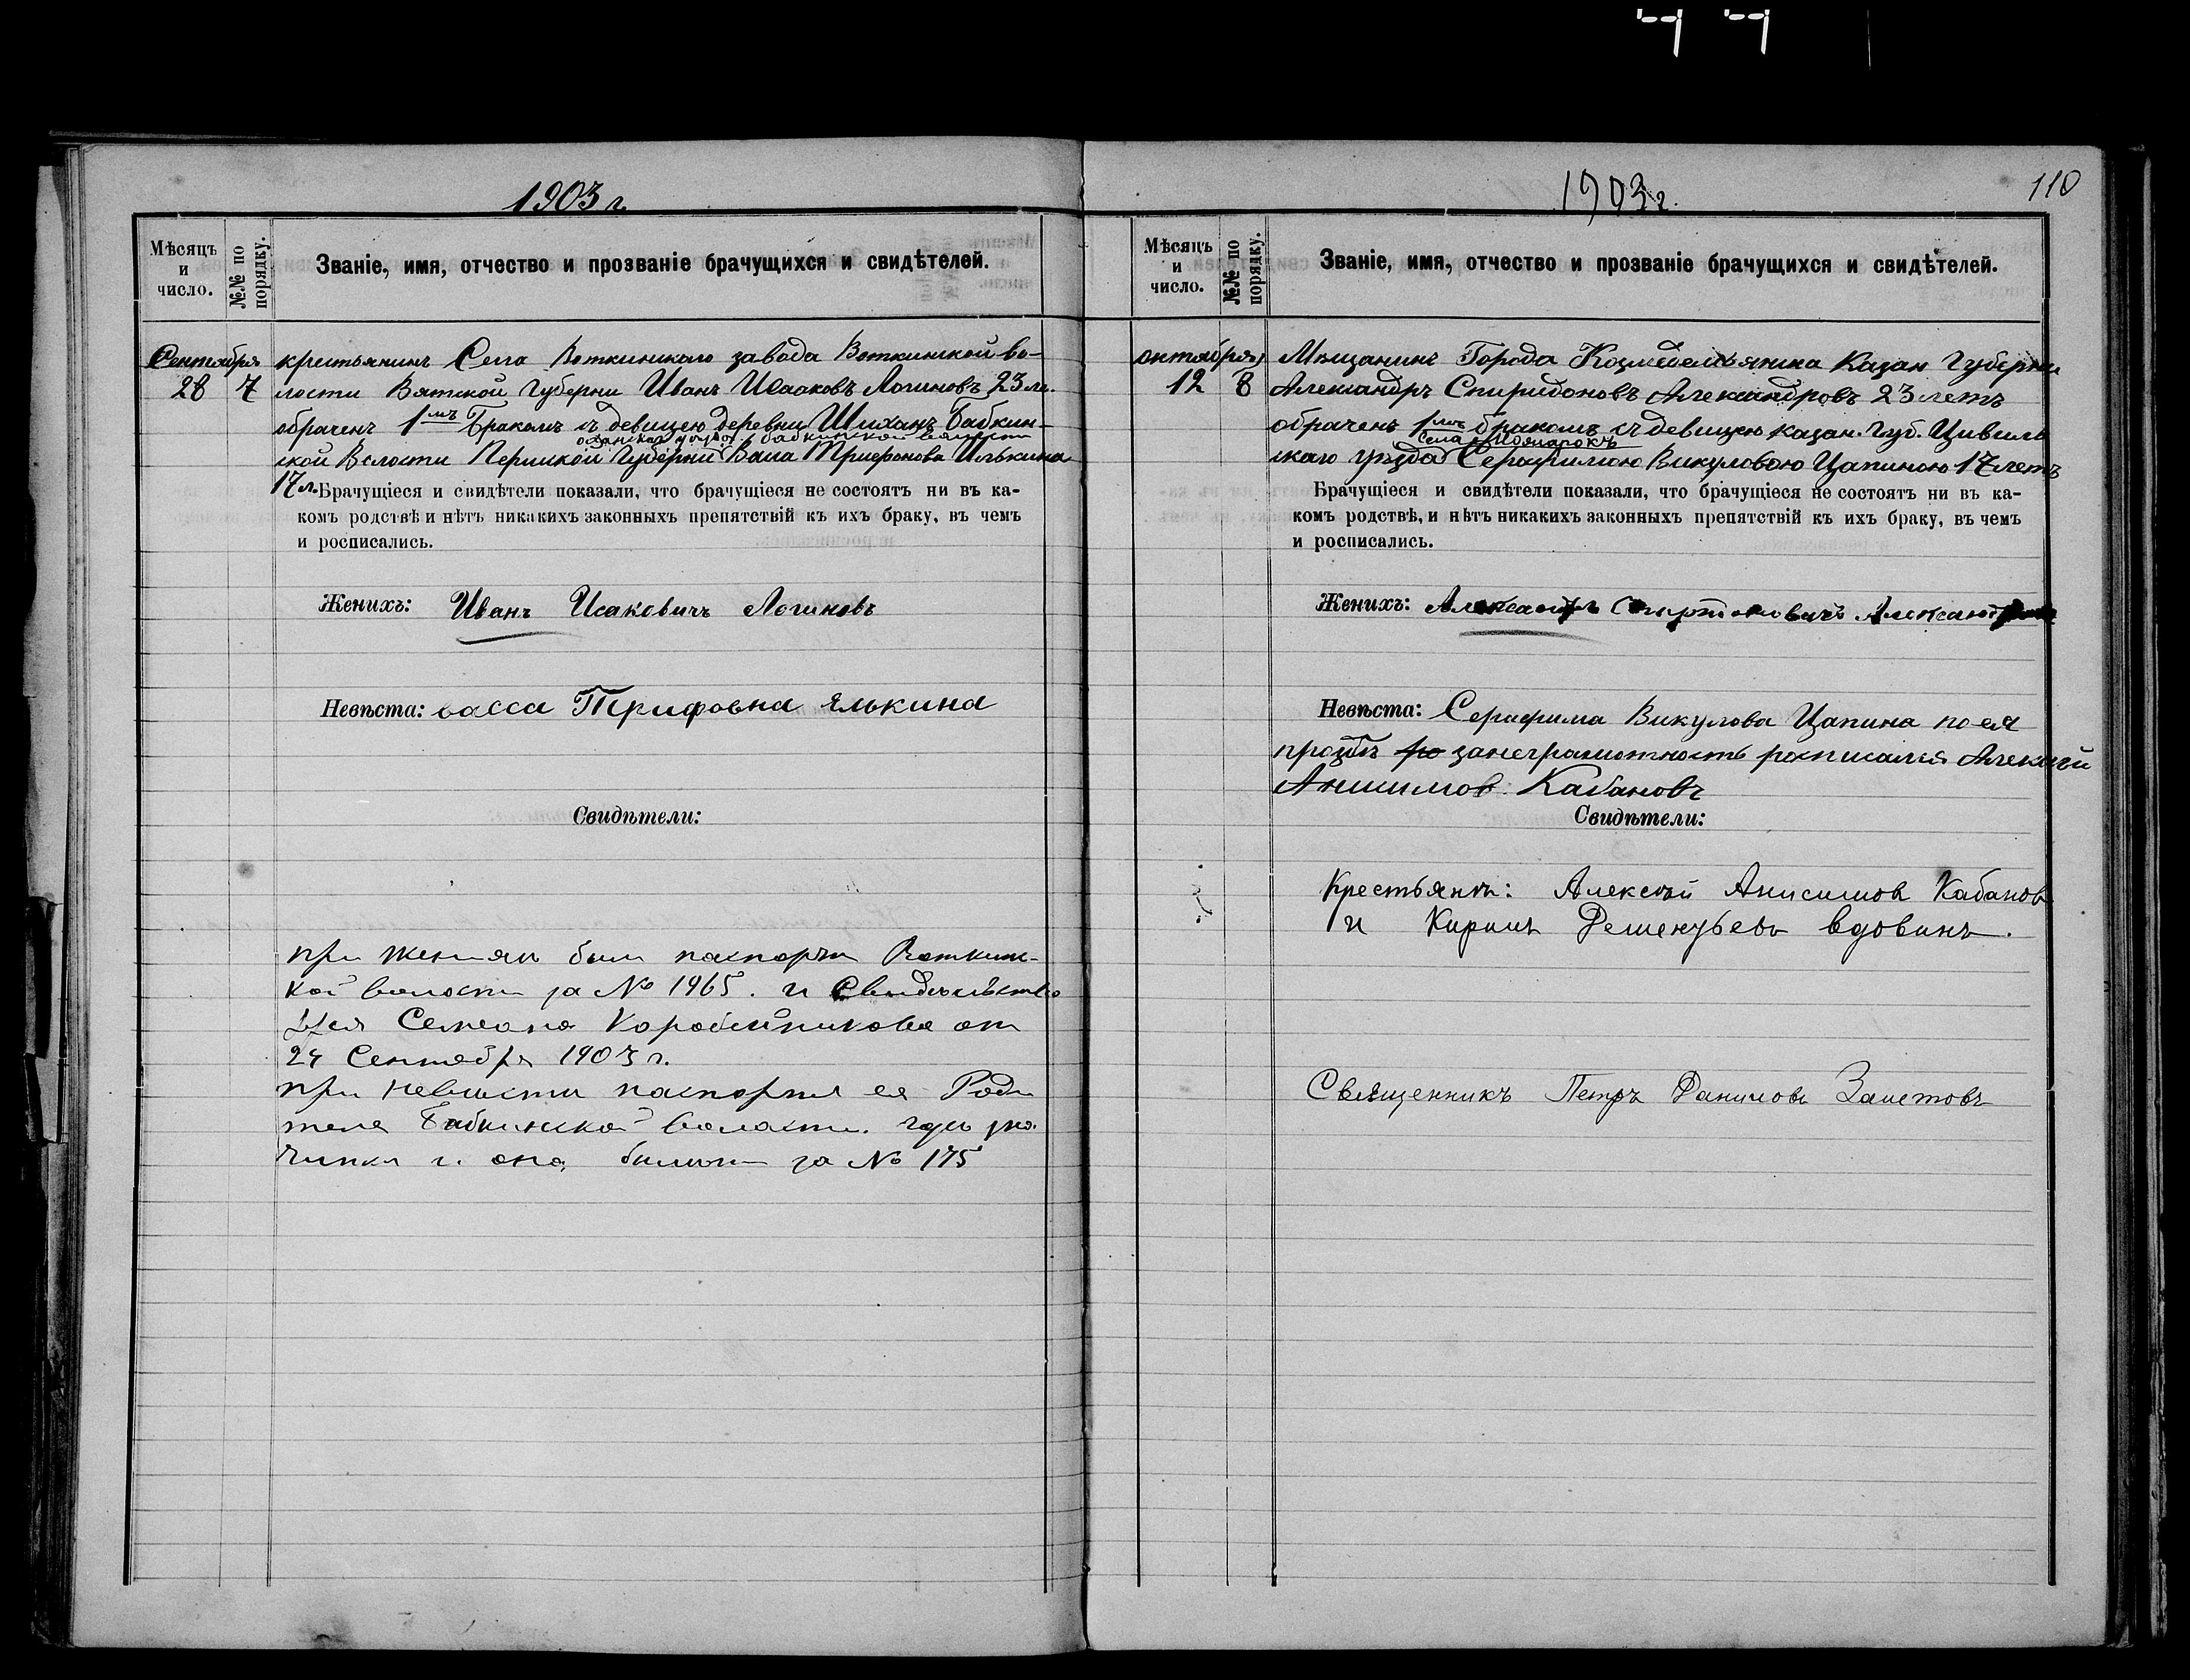 1903 г.
Мѣсяцъ и число.
№№ по порядку.
Званіе, имя, отчество и прозваніе брачущихся и свидѣтелей.
Сентября 28
7
крестьянинъ Села Воткинскаго завода Воткинской во-
лости Вятской Губерни Иванъ Исааковъ Логиновъ 23 ле.
обраченъ 1мъ Бракомъ съ девицею деревни Шиханъ Бабкин-
ской Волости Пермской Губерни Васа Трифонова Илькина
17 л.
Брачущіеся и свидѣтели показали, что брачущіеся не состоятъ ни въ ка-
комъ родствѣ и нѣтъ никакихъ законныхъ препятствій къ ихъ браку, въ чемъ
и росписались.
Женихъ: Иванъ Исаковичъ Логиновъ
Невѣста: васса Трифовна ялькина
Свидѣтели:
при был паспортъ Воткин-
кой волости за № 1965. и Свидѣтельство
Семеона Коробейникова от
24 Сентября 1903 г.
при невести паспортя ея Роди
теля Бабкинской волости.
билет за № 175
1903 г.
110
Мѣсяцъ и число.
№№ по порядку.
Званіе, имя, отчество и прозваніе брачущихся и свидѣтелей.
октября 12
8
Мещанинъ Города Козмодемьянска Казан Губерни
Александръ Спиридоновъ Александровъ 23 летъ
обраченъ 1мъ бракомъ съ девицею казан. Губ. Цивиль
скаго уѣзда Села Серафимою Викуловою Цапиною 17 летъ
Брачущіеся и свидѣтели показали, что брачущіеся не состоятъ ни въ ка-
комъ родствѣ, и нѣтъ никакихъ законныхъ препятствій къ ихъ браку, въ чемъ
и росписались.
Женихъ: Александръ Спиртоновичъ Александров
Невѣста: Серафима Викулова Цапина по ея
прозбѣ занеграмотность росписался Алексѣй
Анисимов Кабановъ
Свидѣтели:
Крестьянѣ: Алексѣй Анисимов Кабанов
и Кирилъ Деменьтьевъ вдовинъ.
Священникъ Петръ Даниловъ Заметовъ